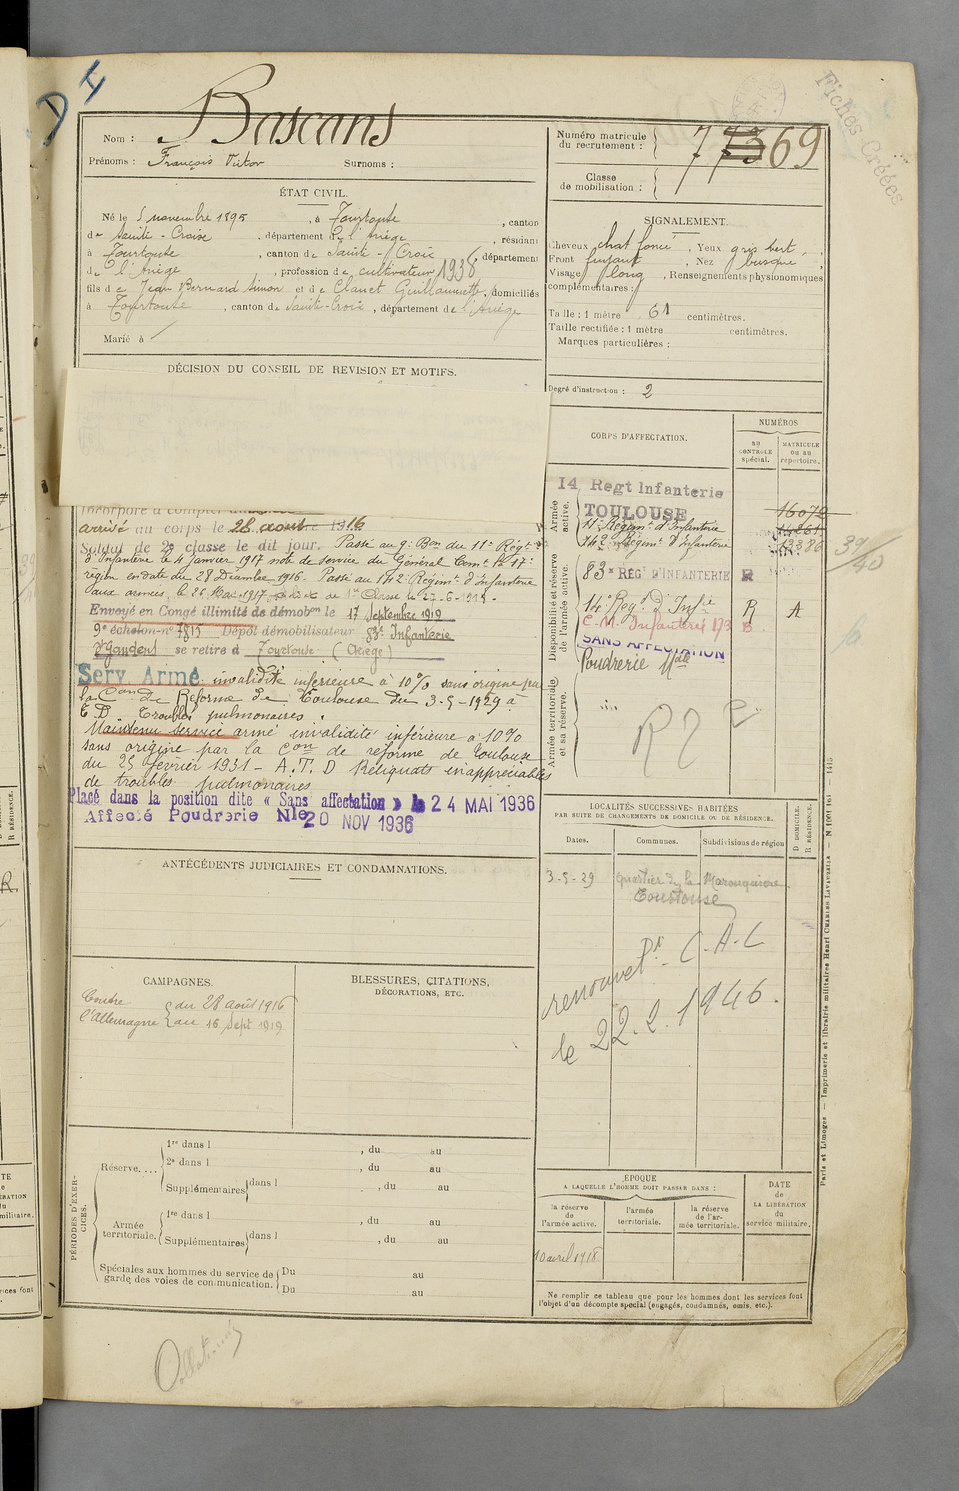 D I
Fiches Créées
Nom : Bascans
Prénoms : François Victor Surnoms :
Numéro matricule du recrutement : 7 7369
Classe de mobilisation :
ÉTAT CIVIL.
Né le 5 novembre 1895, à Tourtouse, canton
de Sainte-Croix, département de l'Ariège, résidant
à Tourtouse, canton de Sainte-Croix, département
de l'Ariège, profession de cultivateur 1938
fils de Jean Bernard Simon et de Clanet Guillaumette, domiciliés
à Tourtouse, canton de Sainte-Croix, département de l'Ariège
Marié à
SIGNALEMENT.
Cheveux chat foncé, Yeux gris vert,
Front fuyant, Nez busqué,
Visage long, Renseignements physionomiques
complémentaires :
Taille : 1 mètre 61 centimètres.
Taille rectifiée : 1 mètre centimètres.
Marques particulières :
Degré d'instruction : 2
DÉCISION DU CONSEIL DE REVISION ET MOTIFS.
Incorporé à compter
arrivé au corps le 28 août 1916
Soldat de 2e classe le dit jour. Passé au 9e Bon du 11e Régt
d'Infanterie le 4 janvier 1917 note de service du Général Comt la 17e
région en date du 28 Décembre 1916. Passé au 142e Régimt d'Infanterie
aux armées, le 26 Mai 1917. Soldat de 1re Classe le 27-6-1918.
Envoyé en Congé illimité de démobon le 17 Septembre 1919
9e échelon n° 7815 Dépôt démobilisateur 83e Infanterie
St Gaudens se retire à Tourtouse (Ariège)
Serv. Armé. invalidité inférieure à 10% sans origine par
la Con de Réforme de Toulouse du 3-5-1929 à
T.D. Troubles pulmonaires.
Maintenu service armé invalidité inférieure à 10%
sans origine par la Con de réforme de Toulouse
du 25 février 1931 - A.T.D Reliquats inappréciables
de troubles pulmonaires
Placé dans la position dite « Sans affectation » le 24 MAI 1936
Affecté Poudrerie Nle 20 NOV 1936
CORPS D'AFFECTATION.
NUMÉROS
au contrôle spécial.
MATRICULE ou au répertoire.
Armée active.
14 Regt Infanterie
TOULOUSE
16072
11e Régimt d'Infanterie
14861
142e Régimt d'Infanterie
13386
Disponibilité et réserve de l'armée active.
83e RÉGt D'INFANTERIE R
14e Régt d'Infie R A
C.M. Infanterie 173 B
SANS AFFECTATION
Poudrerie Nle
39/40
Armée territoriale et sa réserve.
LOCALITÉS SUCCESSIVES HABITÉES
PAR SUITE DE CHANGEMENTS DE DOMICILE OU DE RÉSIDENCE.
Dates. Communes. Subdivisions de région
D DOMICILE. R RÉSIDENCE.
3-5-29 Quartier
Tourtouse
renouvelt Pr C.A.C
le 22.2.1946.
ANTÉCÉDENTS JUDICIAIRES ET CONDAMNATIONS.
CAMPAGNES.
Contre l'Allemagne { du 28 août 1916
au 16 Sept 1919
BLESSURES, CITATIONS,
DÉCORATIONS, ETC.
PÉRIODES D'EXERCICES.
Réserve....
1re dans l , du au
2e dans l , du au
Supplémentaires dans l , du au
Armée territoriale.
1re dans l , du au
Supplémentaires dans l , du au
Spéciales aux hommes du service de garde des voies de communication.
Du au
Du au
ÉPOQUE
A LAQUELLE L'HOMME DOIT PASSER DANS :
la réserve de l'armée active.
l'armée territoriale.
la réserve de l'armée territoriale.
DATE DE LA LIBÉRATION du service militaire.
10 avril 1918.
Ne remplir ce tableau que pour les hommes dont les services font
l'objet d'un décompte spécial (engagés, condamnés, omis, etc.).
Paris et Limoges — Imprimerie et librairie militaires Henri CHARLES-LAVAUZELLE